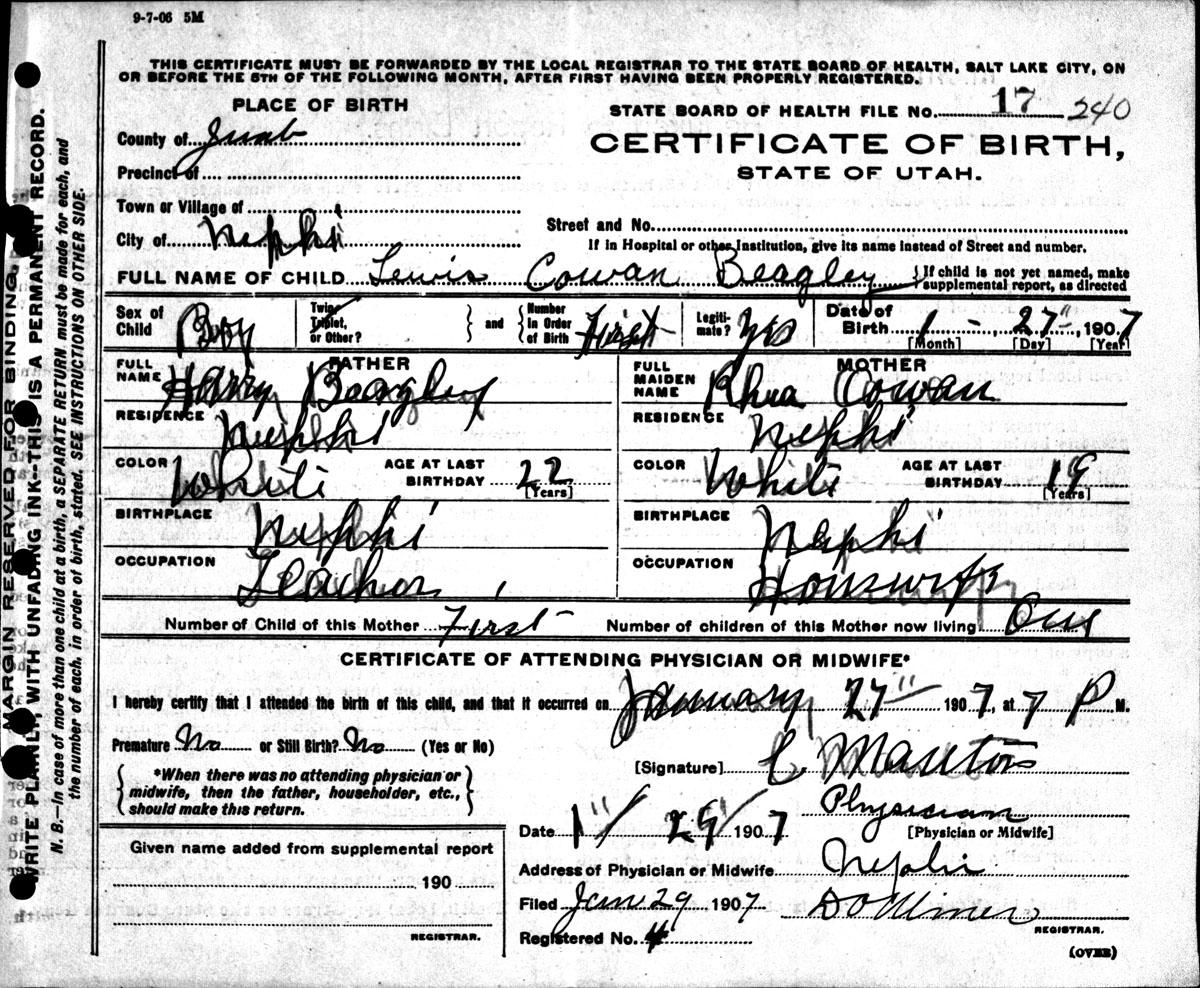 9-7-06 5M
THIS CERTIFICATE MUST BE FORWARDED BY THE LOCAL REGISTRAR TO THE STATE BOARD OF HEALTH, SALT LAKE CITY, ON
OR BEFORE THE 5TH OF THE FOLLOWING MONTH, AFTER FIRST HAVING BEEN PROPERLY REGISTERED.
PLACE OF BIRTH
County of Juab
Precinct of
Town or Village of
City of Nephi
STATE BOARD OF HEALTH FILE No. 17 240
CERTIFICATE OF BIRTH,
STATE OF UTAH.
Street and No.
If in Hospital or other Institution, give its name instead of Street and number.
FULL NAME OF CHILD Lewis Cowan Beagley } If child is not yet named, make
supplemental report, as directed
Sex of Child Boy
Twin, Triplet, or Other? } and { Number in Order of Birth First
Legitimate? Yes
Date of Birth 1 - 27" 1907
[Month] [Day] [Year]
FATHER
FULL NAME Harry Beagley
RESIDENCE Nephi
COLOR White AGE AT LAST BIRTHDAY 22 [Years]
BIRTHPLACE Nephi
OCCUPATION Teacher
MOTHER
FULL MAIDEN NAME Rhea Cowan
RESIDENCE Nephi
COLOR White AGE AT LAST BIRTHDAY 19 [Years]
BIRTHPLACE Nephi
OCCUPATION Housewife
Number of Child of this Mother First Number of children of this Mother now living One
CERTIFICATE OF ATTENDING PHYSICIAN OR MIDWIFE*
I hereby certify that I attended the birth of this child, and that it occurred on January 27" 1907, at 7 P M.
Premature No or Still Birth? No (Yes or No)
{ *When there was no attending physician or
midwife, then the father, householder, etc.,
should make this return. }
[Signature]
Physician
[Physician or Midwife]
Date 1"/ 29"/ 1907
Address of Physician or Midwife Nephi
Filed Jan 29 1907
REGISTRAR.
Registered No. 4
(OVER)
Given name added from supplemental report
190
REGISTRAR.
MARGIN RESERVED FOR BINDING.
WRITE PLAINLY, WITH UNFADING INK--THIS IS A PERMANENT RECORD.
N. B.—In case of more than one child at a birth, a SEPARATE RETURN must be made for each, and
the number of each, in order of birth, stated. SEE INSTRUCTIONS ON OTHER SIDE.